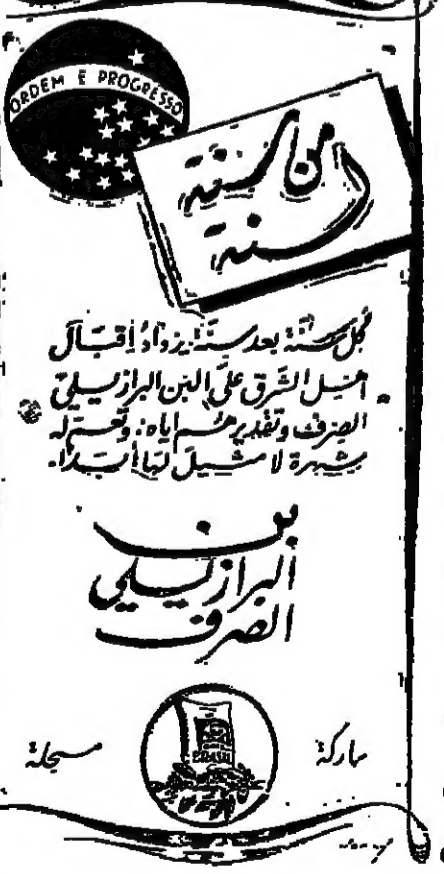 ORDEM E PROGRESSO
من السنة
السنة
فكل سنة بعد سنة يزداد إقبال
أهل الشرق على البن البرازيلي
الصرف وتقديرهم إياه. وتعم له
شهرة لا مثيل لها أبدا.
بن
البرازيلي
الصرف
ماركة
مسجلة